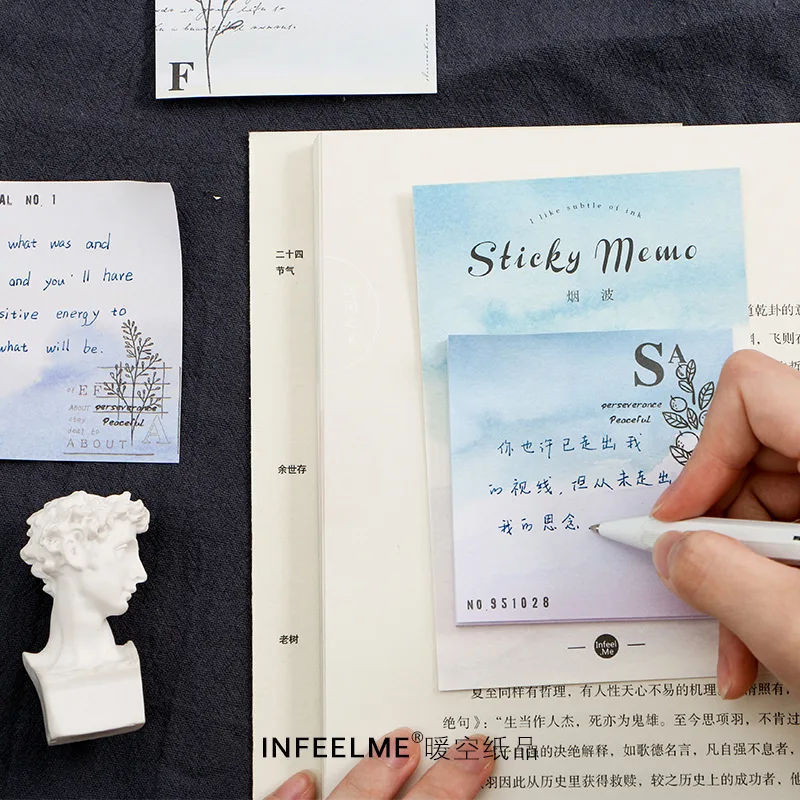 in a beautiful sunset.
F
AL NO. 1
what was and
and you'll have
sitive energy to
what will be.
EF
ABOUT perseverance
Peaceful
ABOUT
A
二十四
节气
余世存
老树
I like subtle of ink
Sticky Memo
烟 波
SA
perseverance
Peaceful
你也许已走出我
的视线，但从未走出
我的思念
NO.951028
Infeel
.Me
夏至同样有哲理，有人性天心不易的机理。
绝句》：“生当作人杰，死亦为鬼雄。至今思项羽，不肯过
的决绝解释，如歌德名言，凡自强不息者，
羽因此从历史里获得救赎，较之历史上的成功者，他
INFEELME®暖空纸品